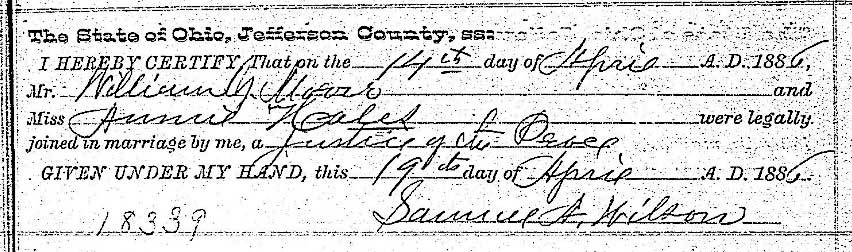 The State of Ohio, Jefferson County, ss:
I HEREBY CERTIFY, That on the 14th day of April A. D. 1886,
Mr. William Moore and
Miss Annie Hales were legally
joined in marriage by me, a Justice of the Peace
GIVEN UNDER MY HAND, this 19th day of April A. D. 1886
Samuel A. Wilson
18339